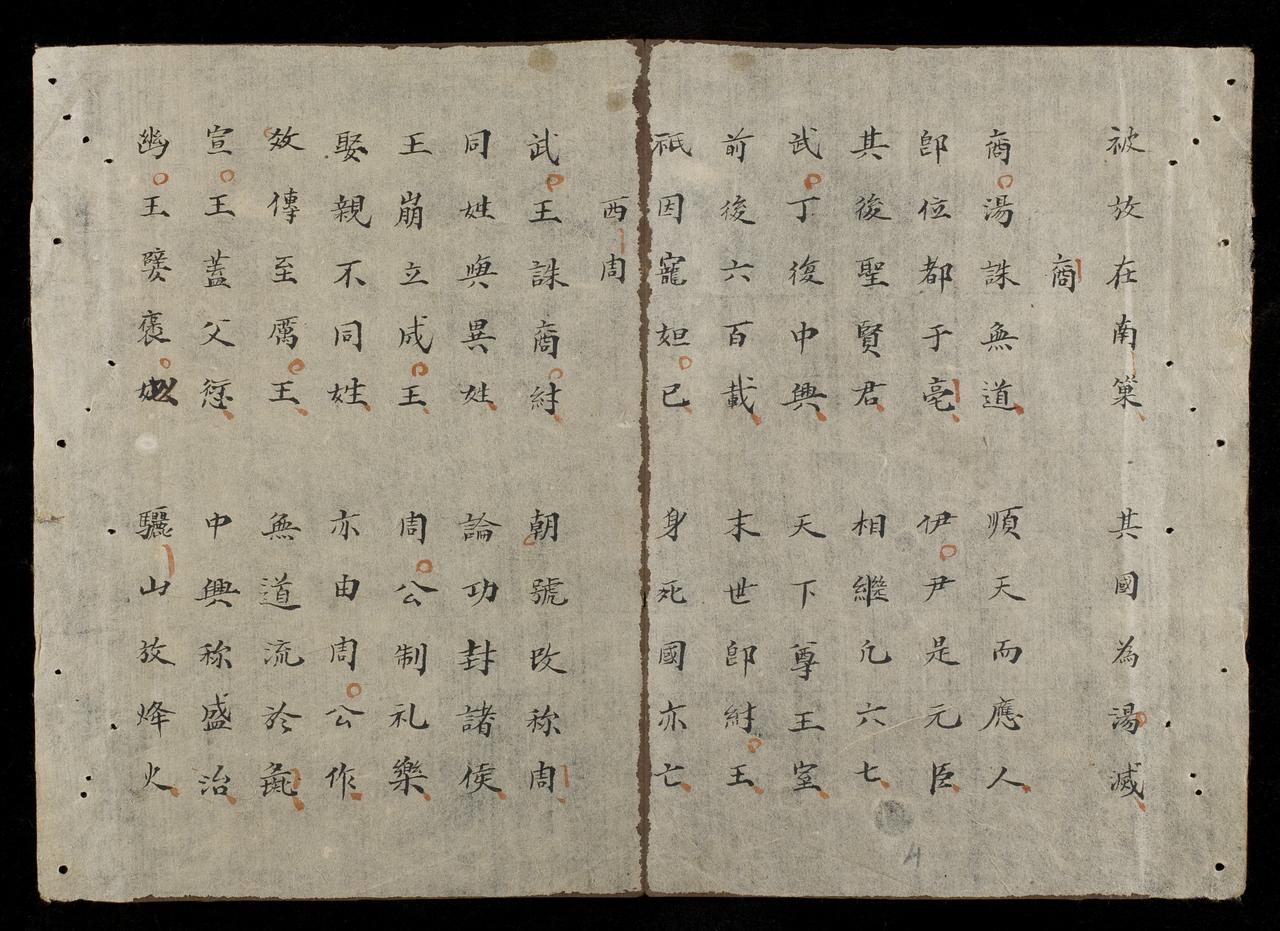 被放在南巢 其國為湯滅
商
商湯誅無道 順天而應人
即位都于亳 伊尹是元臣
其後聖賢君 相繼凡六七
武丁復中興 天下尊王室
前後六百載 末世即紂王
祇因寵妲已 身死國亦亡
西周
武王誅商紂 朝號改称周
同姓與異姓 論功封諸侯
王崩立成王 周公制礼樂
娶親不同姓 亦由周公作
效傳至厲王 無道流於彘
宣王蓋父愆 中興称盛治
幽王嬖褒姒 驪山放烽火